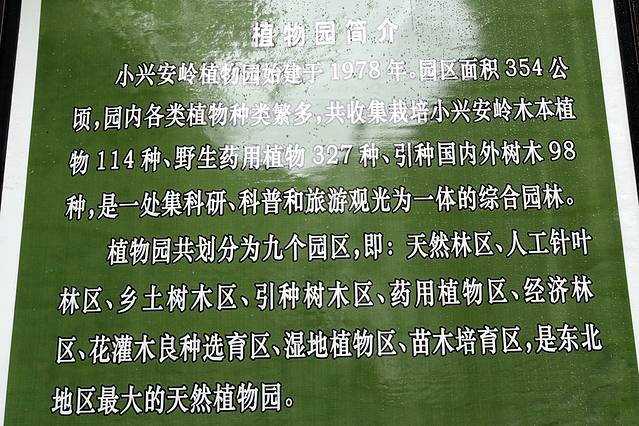 植物园简介
小兴安岭植物园始建于1978年。园区面积354公
顷,园内各类植物种类繁多,共收集栽培小兴安岭木本植
物114种、野生药用植物327种、引种国内外树木98
种,是一处集科研、科普和旅游观光为一体的综合园林。
植物园共划分为九个园区,即:天然林区、人工针叶
林区、乡土树木区、引种树木区、药用植物区、经济林
区、花灌木良种选育区、湿地植物区、苗木培育区,是东北
地区最大的天然植物园。